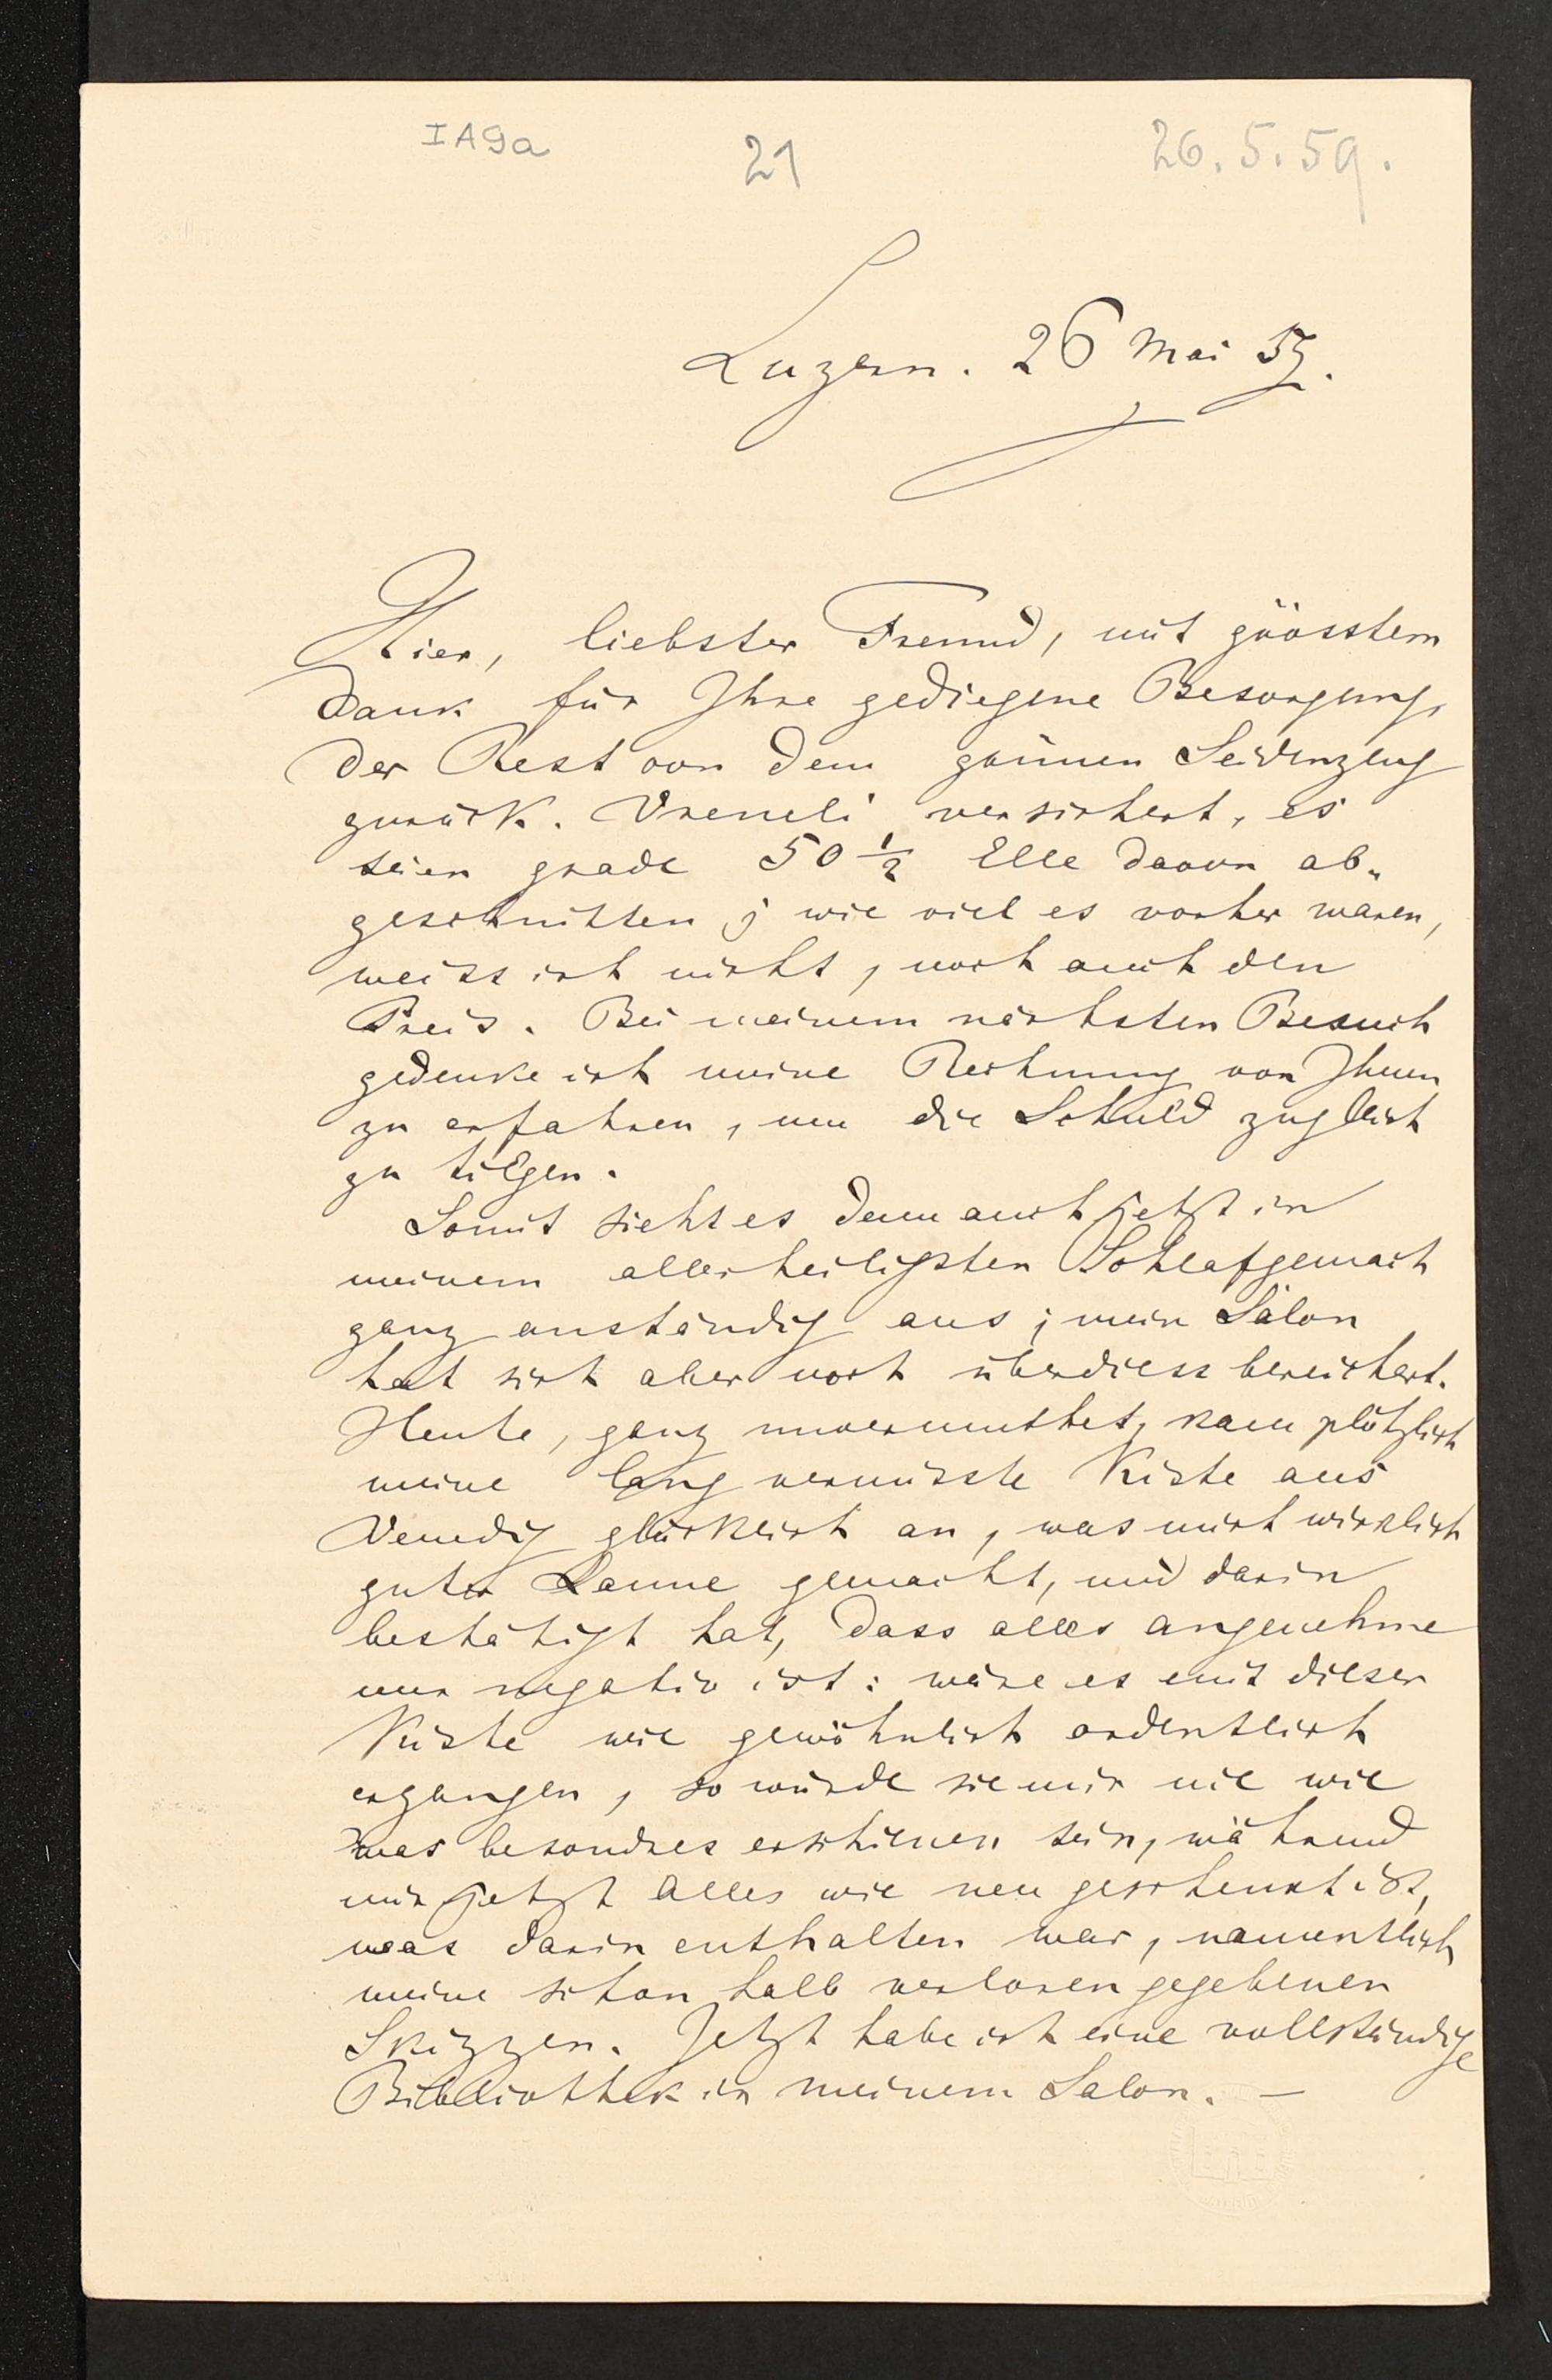 IA9a
21
26.5.59.
Luzern. 26 Mai 59.
Hier, liebster Freund, mit grösstem
Dank für Ihre gediegene Besorgung,
der Rest von dem grünen Seidenzeug
zurück. Vreneli versichert, es
seien grade 50 1/2 Elle davon ab-
geschnitten; wie viel es vorher waren,
weiss ich nicht, noch auch den
Preis. Bei meinem nächsten Besuch
gedenke ich meine Rechnung von Ihnen
zu erfahren, um die Schuld zugleich
zu tilgen.
Somit sieht es denn auch jetzt in
meinem allerheiligsten Schlafgemach
ganz anständig aus; mein Salon
hat sich aber noch überdiess bereichert.
Heute, ganz unvermuthet, kam plötzlich
meine lang vermisste Kiste aus
Venedig glücklich an, was mich wirklich
guter Laune gemacht, und darin
bestätigt hat, dass alles angenehme
nur negativ ist: wäre es mit dieser
Kiste wie gewöhnlich ordentlich
ergangen, so würde sie mir nie wie
was besondres erschienen sein, während
mir jetzt Alles wie neu geschenkt ist,
was darin enthalten war, namentlich
meine schon halb verloren gegebenen
Skizzen. Jetzt habe ich eine vollständige
Bibliothek in meinem Salon. —